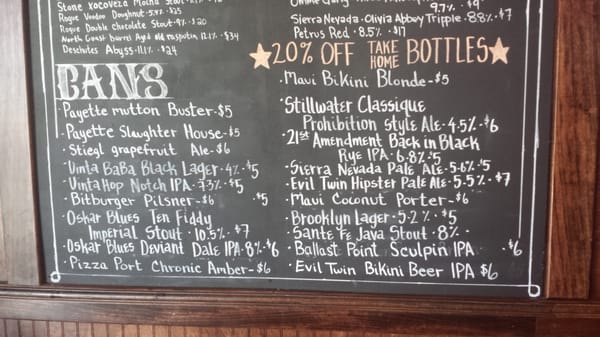 Stone Xocoveza Mocha Stout
Rogue Voodoo Doughnut
Rogue Double Chocolate Stout $20
North Coast Barrel Aged Old Rasputin $34
Deschutes Abyss $24
9.7% $9
Sierra Nevada Olivia Abbey Tripple 8.8% $7
Petrus Red 8.5% $17
20% OFF TAKE HOME BOTTLES
CANS
Payette mutton Buster-$5
Payette Slaughter House-$5
Stiegl grapefruit Ale-$6
Uinta BaBa Black Lager-4%-$5
Uinta Hop Notch IPA $5
Bitburger Pilsner-$6 $5
Oskar Blues Ten Fiddy
Imperial Stout 10.5% $7
Oskar Blues Deviant Dale IPA 8% $6
Pizza Port Chronic Amber-$6
Maui Bikini Blonde-$5
Stillwater Classique
Prohibition Style Ale-4.5% $6
21st Amendment Back in Black
Rye IPA-6.8% $5
Sierra Nevada Pale Ale-5.6% $5
Evil Twin Hipster Pale Ale-5.5% $7
Maui Coconut Porter-$6
Brooklyn Lager-5.2% $5
Sante Fe Java Stout-8%
Ballast Point Sculpin IPA $6
Evil Twin Bikini Beer IPA $6